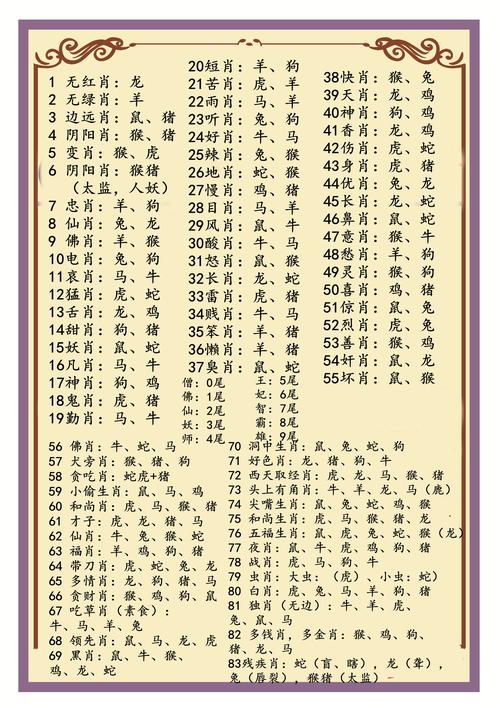 1 无红肖：龙
2 无绿肖：羊
3 边远肖：鼠、猪
4 阴阳肖：猴、猪
5 变肖：猴、虎
6 阴阳肖：猴猪
（太监，人妖）
7 忠肖：羊、狗
8 仙肖：兔、龙
9 佛肖：羊、猴
10电肖：兔、狗
11哀肖：马、牛
12猛肖：虎、蛇
13舌肖：龙、鸡
14甜肖：狗、猪
15妖肖：鼠、蛇
16凡肖：马、牛
17神肖：狗、鸡
18鬼肖：虎、猪
19勤肖：马、牛
20短肖：羊、狗
21苦肖：虎、羊
22雨肖：马、羊
23听肖：兔、狗
24好肖：牛、马
25辣肖：兔、猴
26地肖：蛇、猴
27慢肖：鸡、猪
28目肖：马、羊
29风肖：鼠、牛
30酸肖：牛、马
31怒肖：鼠、猴
32长肖：龙、蛇
33雷肖：虎、猪
34贱肖：牛、马
35笨肖：羊、猪
36懒肖：羊、猪
37臭肖：鼠、蛇
38快肖：猴、兔
39天肖：龙、鸡
40神肖：狗、鸡
41香肖：龙、鸡
42伤肖：虎、蛇
43身肖：虎、猪
44优肖：兔、龙
45长肖：龙、蛇
46鼻肖：鼠、蛇
47意肖：猴、牛
48愁肖：羊、狗
49灵肖：猴、狗
50喜肖：鸡、猪
51惊肖：鼠、兔
52烈肖：虎、鸡
53善肖：猴、鸡
54奸肖：鼠、龙
55坏肖：鼠、猴
僧：0尾
佛：1尾
仙：2尾
妖：3尾
师：4尾
王：5尾
妃：6尾
智：7尾
霸：8尾
雄：9尾
56 佛肖：牛、蛇、马
57 犬旁肖：猴、猪、狗
58 贪吃肖：蛇虎+猪
59 小偷生肖：鼠、马、鸡
60 和尚肖：虎、马、猴、猪
61 才子：虎、龙、猪、马
62 仙肖：牛、兔、猴、蛇
63 福肖：羊、鸡、猴、马
64 带刀肖：虎、蛇、兔、龙
65 多情肖：龙、狗、猪、马
66 贪财肖：猴、鸡、狗、鼠
67 吃草肖（素食）：
牛、马、羊、兔
68 领先肖：鼠、马、龙、羊
69 黑肖：鼠、牛、猴、
鸡、龙、蛇
70 洞中生肖：鼠、兔、蛇、狗
71 好色肖：龙、猪、狗、牛
72 西天取经肖：虎、龙、马、猴、猪
73 头上有角肖：牛、羊、龙、马（鹿）
74 尖嘴生肖：鼠、兔、蛇、鸡、猴
75 和尚生肖：鼠、马、猴、猪、龙
76 五福生肖：鼠、虎、兔、蛇、猴（龙）
77 夜肖：鼠、牛、虎、鸡、狗、猪
78 战肖：虎、马、狗、牛
79 虫肖：大虫：（虎）、小虫：蛇）
80 白肖：虎、兔、马、羊、狗、猪
81 独肖（无边）：牛、羊、虎、
兔、鼠、马
82 多钱肖，多金肖：猴、鸡、狗、
猪、龙、马
83残疾肖：蛇（盲、瞎），龙（聋），
兔（唇裂），猴猪（太监）